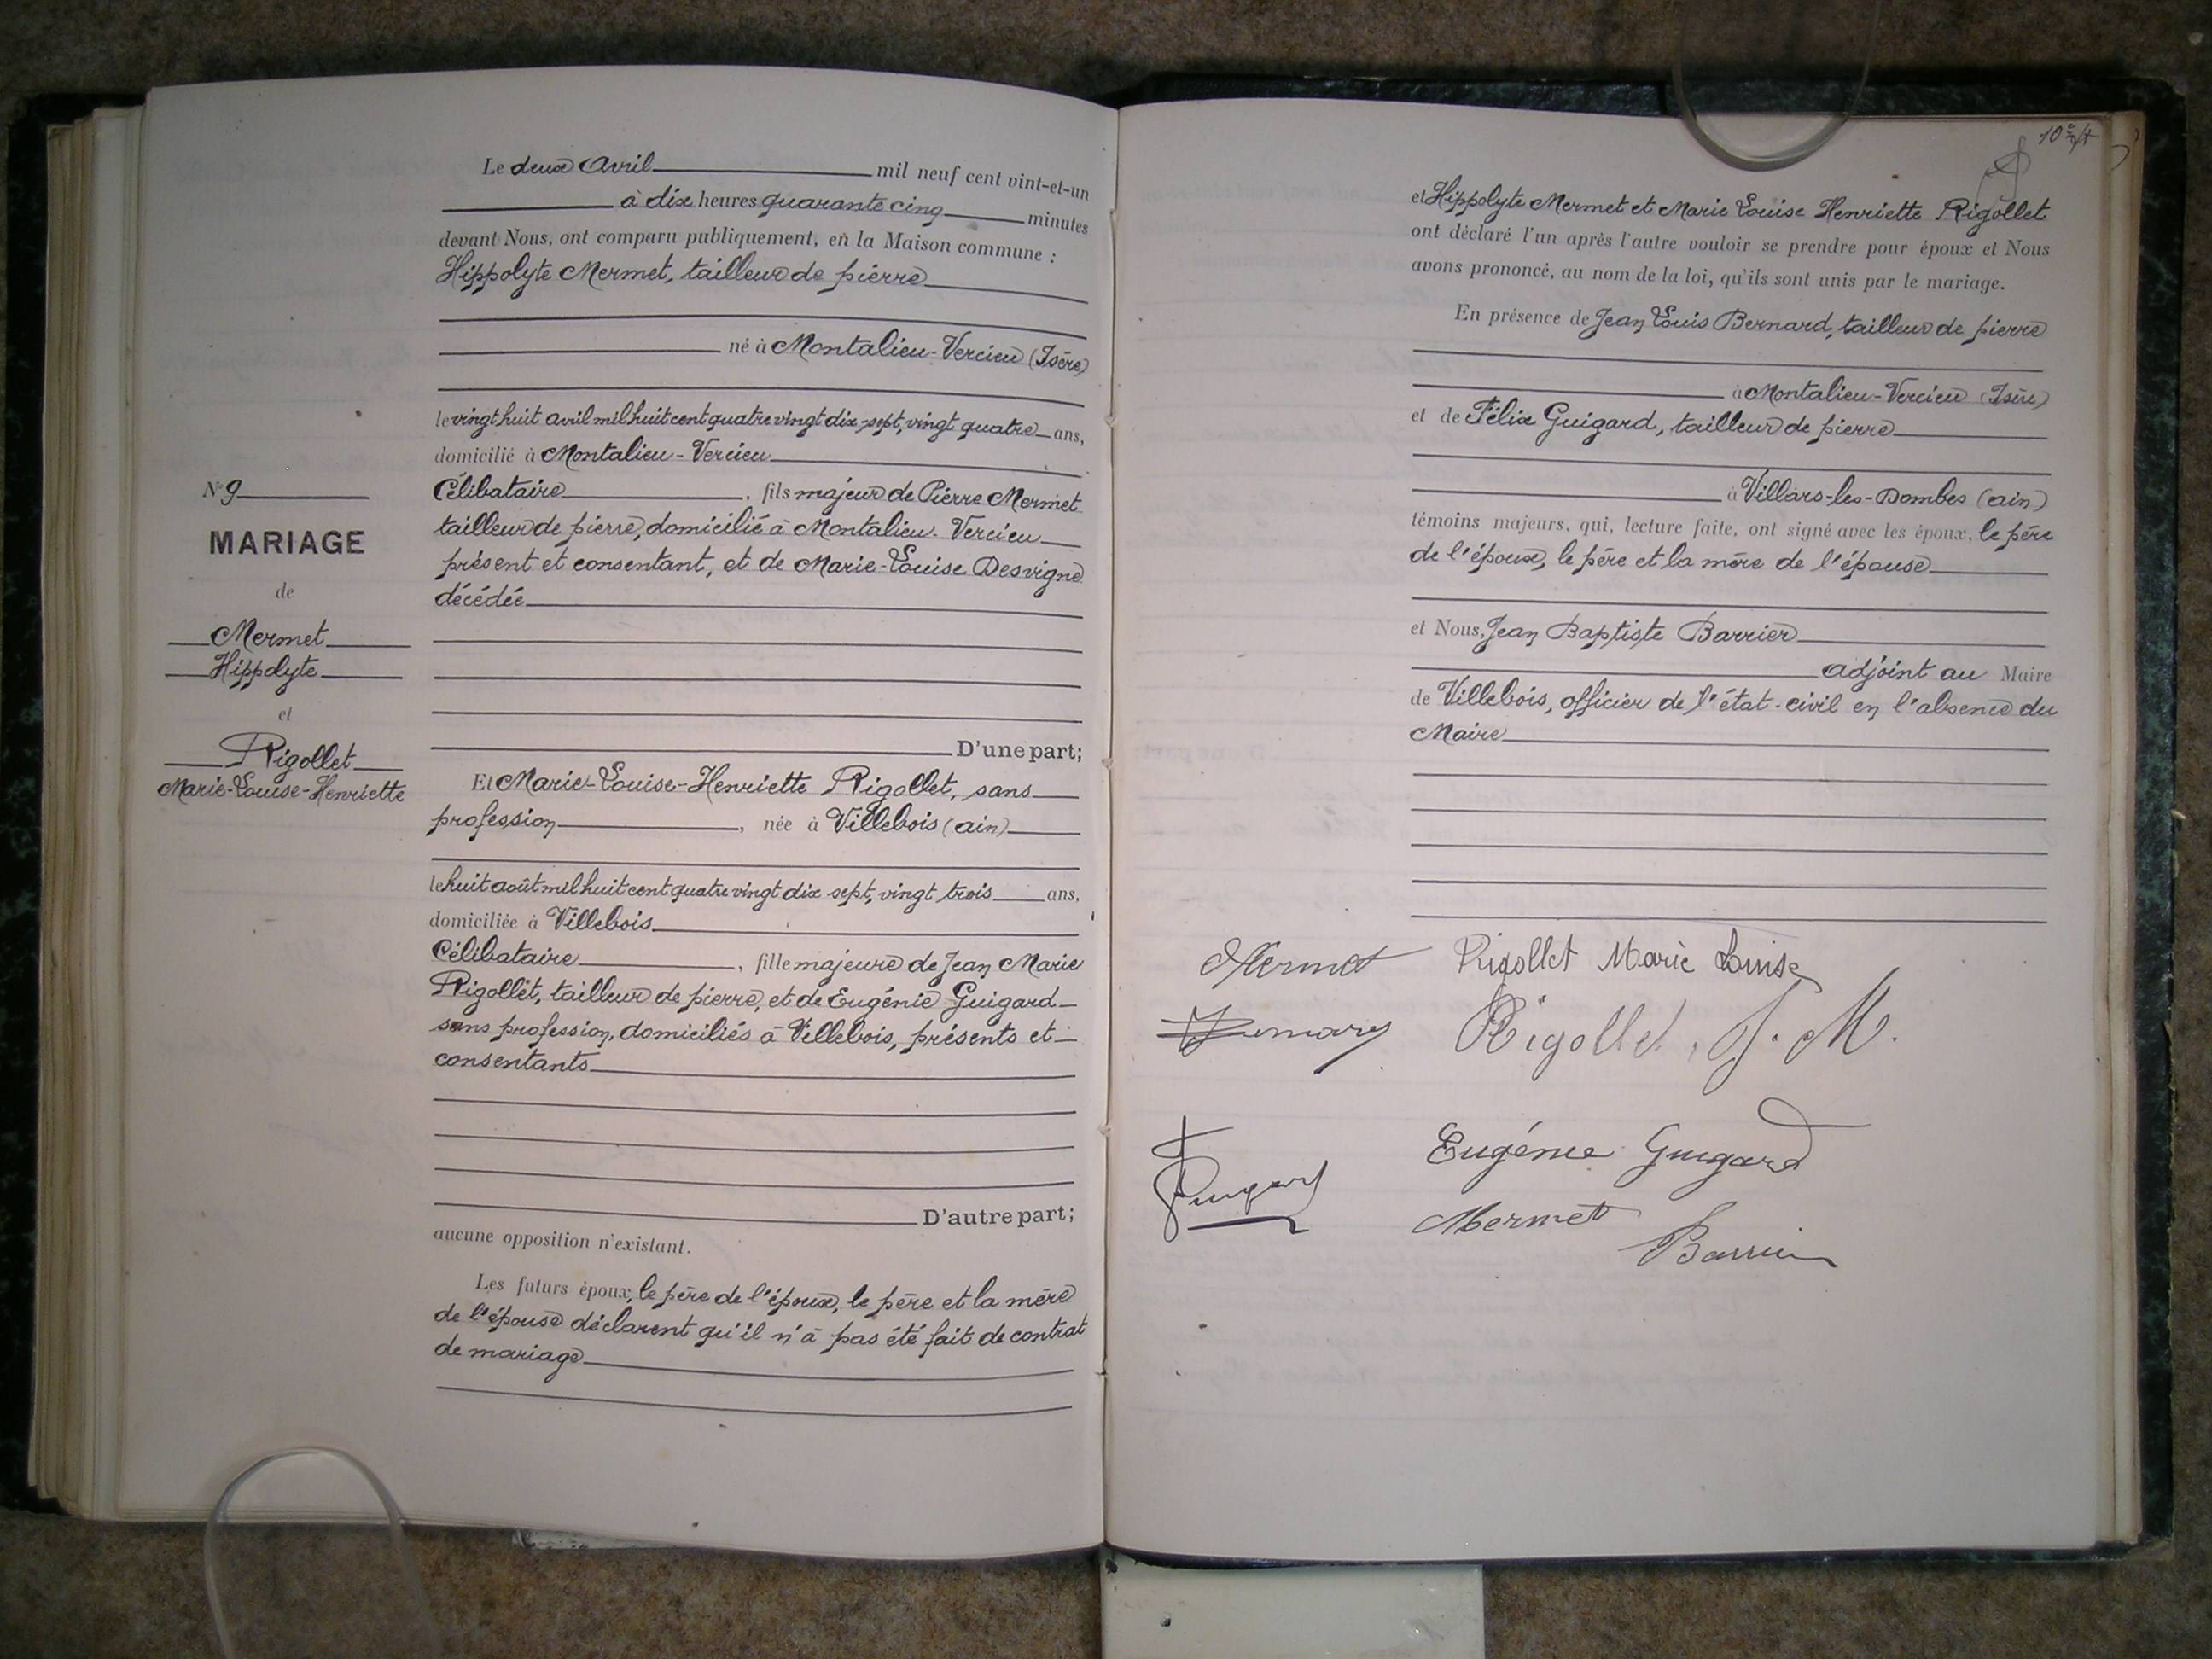 N° 9
MARIAGE
de
Mermet
Hippolyte
et
Rigollet
Marie-Louise-Henriette
Le deux Avril mil neuf cent vint-et-un
à dix heures quarante cinq minutes
devant Nous, ont comparu publiquement, en la Maison commune :
Hippolyte Mermet, tailleur de pierre
né à Montalieu-Vercieu (Isère)
le vingt huit avril mil huit cent quatre vingt dix-sept, vingt quatre ans,
domicilié à Montalieu-Vercieu
Célibataire, fils majeur de Pierre Mermet
tailleur de pierre, domicilié à Montalieu-Vercieu
présent et consentant, et de Marie-Louise Desvigne
décédée
D'une part;
Et Marie-Louise-Henriette Rigollet, sans
profession, née à Villebois (ain)
le huit août mil huit cent quatre vingt dix sept, vingt trois ans,
domiciliée à Villebois
Célibataire, fille majeure de Jean Marie
Rigollet, tailleur de pierre, et de Eugénie Guigard
sans profession, domiciliés à Villebois, présents et
consentants
D'autre part;
aucune opposition n'existant.
Les futurs époux, le père de l'époux, le père et la mère
de l'épouse déclarent qu'il n'à pas été fait de contrat
de mariage
et Hippolyte Mermet et Marie Louise Henriette Rigollet
ont déclaré l'un après l'autre vouloir se prendre pour époux et Nous
avons prononcé, au nom de la loi, qu'ils sont unis par le mariage.
En présence de Jean Louis Bernard, tailleur de pierre
à Montalieu-Vercieu (Isère)
et de Félix Guigard, tailleur de pierre
à Villars-les-Dombes (ain)
témoins majeurs, qui, lecture faite, ont signé avec les époux, le père
de l'époux, le père et la mère de l'épouse
et Nous, Jean Baptiste Barrier
adjoint au Maire
de Villebois, officier de l'état-civil en l'absence du
Maire
Mermet Rigollet Marie Louise
Rigollet, J. M.
Eugénie Guigard
Mermet
Barrier